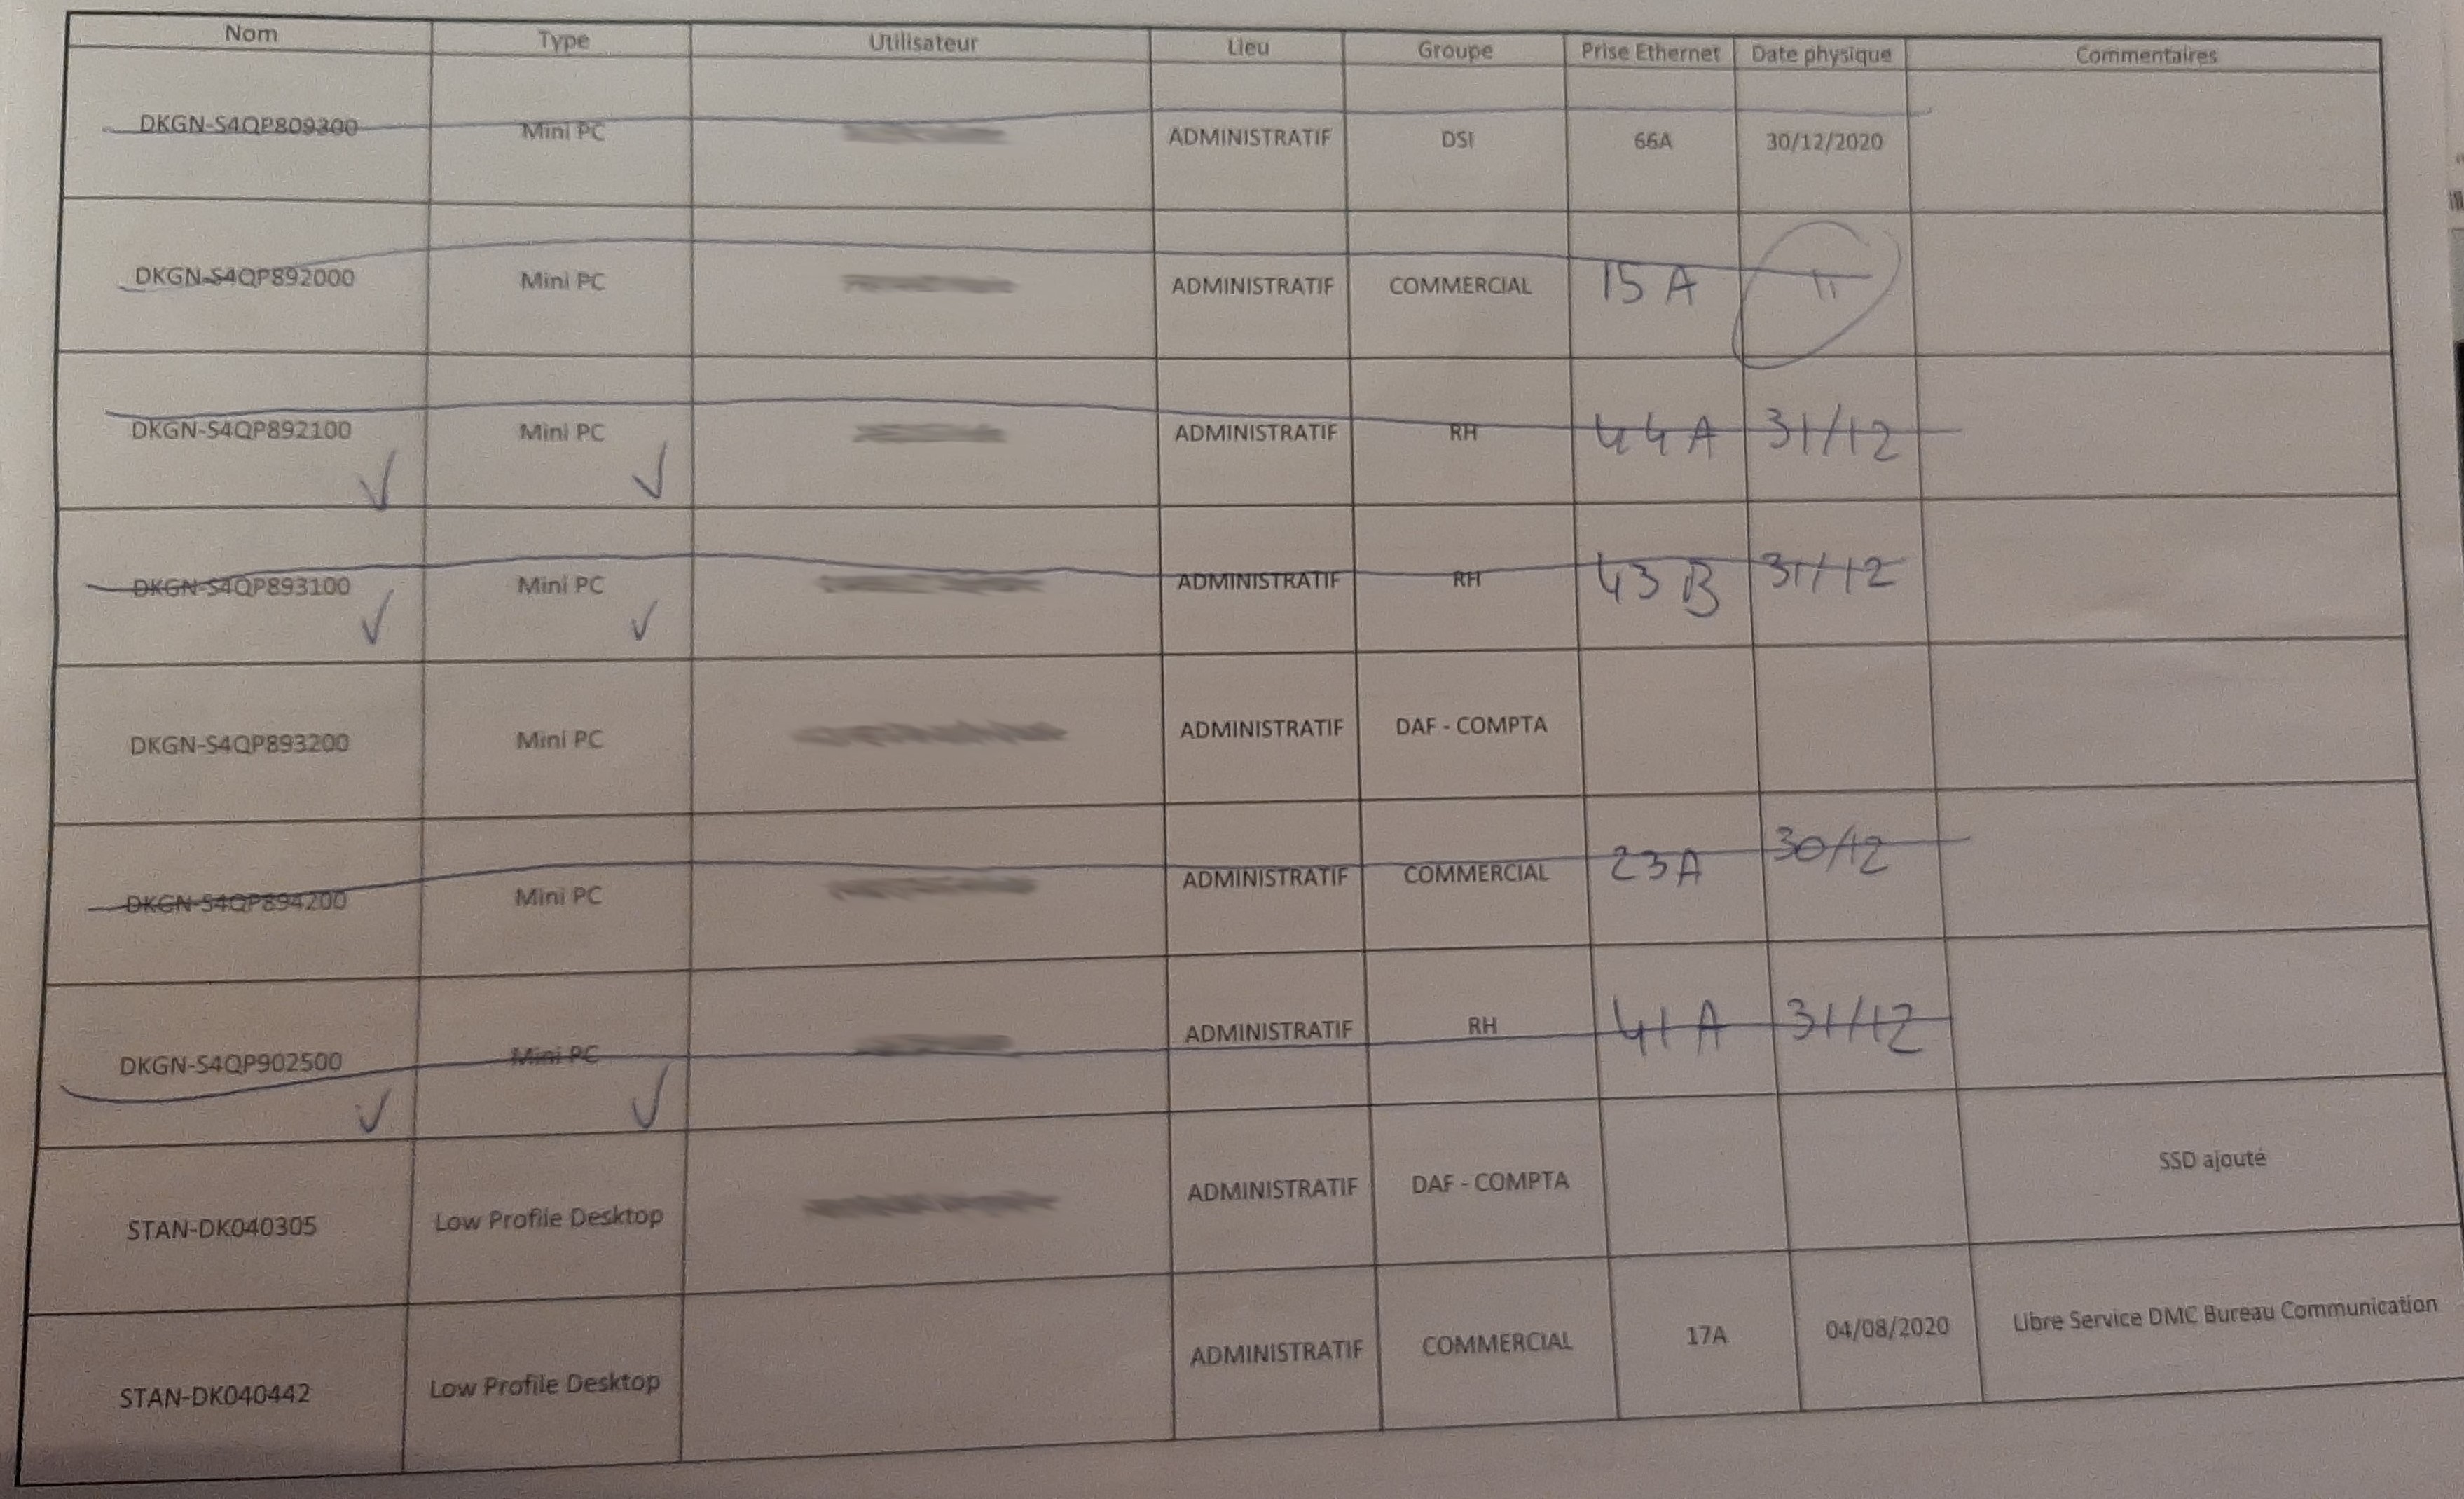 Nom Type Utilisateur Lieu Groupe Prise Ethernet Date physique Commentaires
DKGN-S4QP809300 Mini PC ADMINISTRATIF DSI 66A 30/12/2020
DKGN-S4QP892000 Mini PC ADMINISTRATIF COMMERCIAL 15 A
DKGN-S4QP892100 Mini PC ADMINISTRATIF RH 44A 31/12
DKGN-S4QP893100 Mini PC ADMINISTRATIF RH 43B 31/12
DKGN-S4QP893200 Mini PC ADMINISTRATIF DAF - COMPTA
DKGN-S4QP894200 Mini PC ADMINISTRATIF COMMERCIAL 23A 30/12
DKGN-S4QP902500 Mini PC ADMINISTRATIF RH 41A 31/12
STAN-DK040305 Low Profile Desktop ADMINISTRATIF DAF - COMPTA SSD ajouté
STAN-DK040442 Low Profile Desktop ADMINISTRATIF COMMERCIAL 17A 04/08/2020 Libre Service DMC Bureau Communication